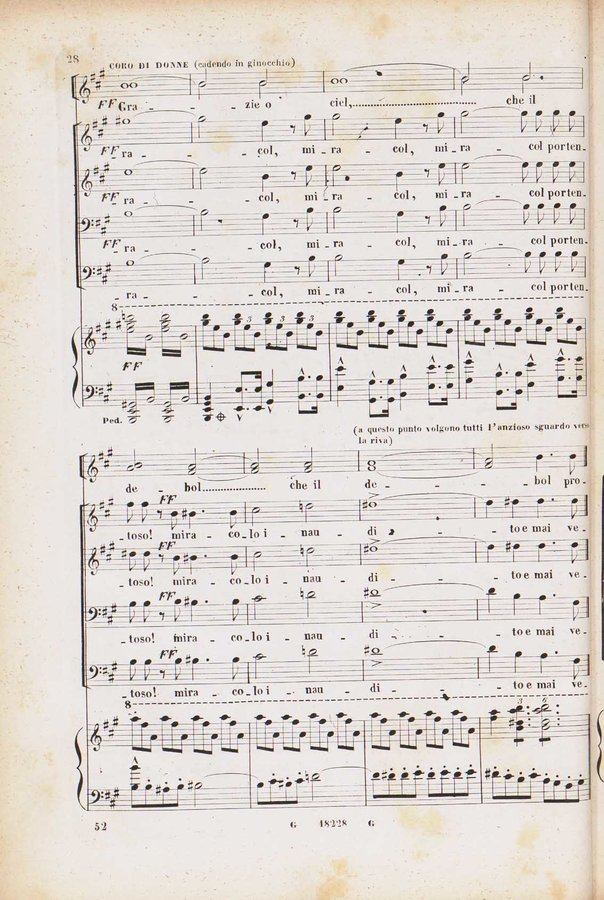 28
CORO DI DONNE (cadendo in ginocchio)
FF Gra - zie o ciel,........................ che il
FF ra - col, mi - ra - col, mi - ra - col porten -
FF ra - col, mi - ra - col, mi - ra - col porten -
FF ra - col, mi - ra - col, mi - ra - col porten -
ra - col, mi - ra - col, mi - ra - col porten -
8
3 3 3
FF
Ped.
(a questo punto volgono tutti l'anzioso sguardo verso
la riva)
de - bol.............. che il de - bol pro -
FF
- toso! mira - co - lo i - nau - di - to e mai ve -
FF
- toso! mira - co - lo i - nau - di - to e mai ve -
FF
- toso! mira - co - lo i - nau - di - to e mai ve -
FF
- toso! mira - co - lo i - nau - di - to e mai ve -
8
52 G 18228 G